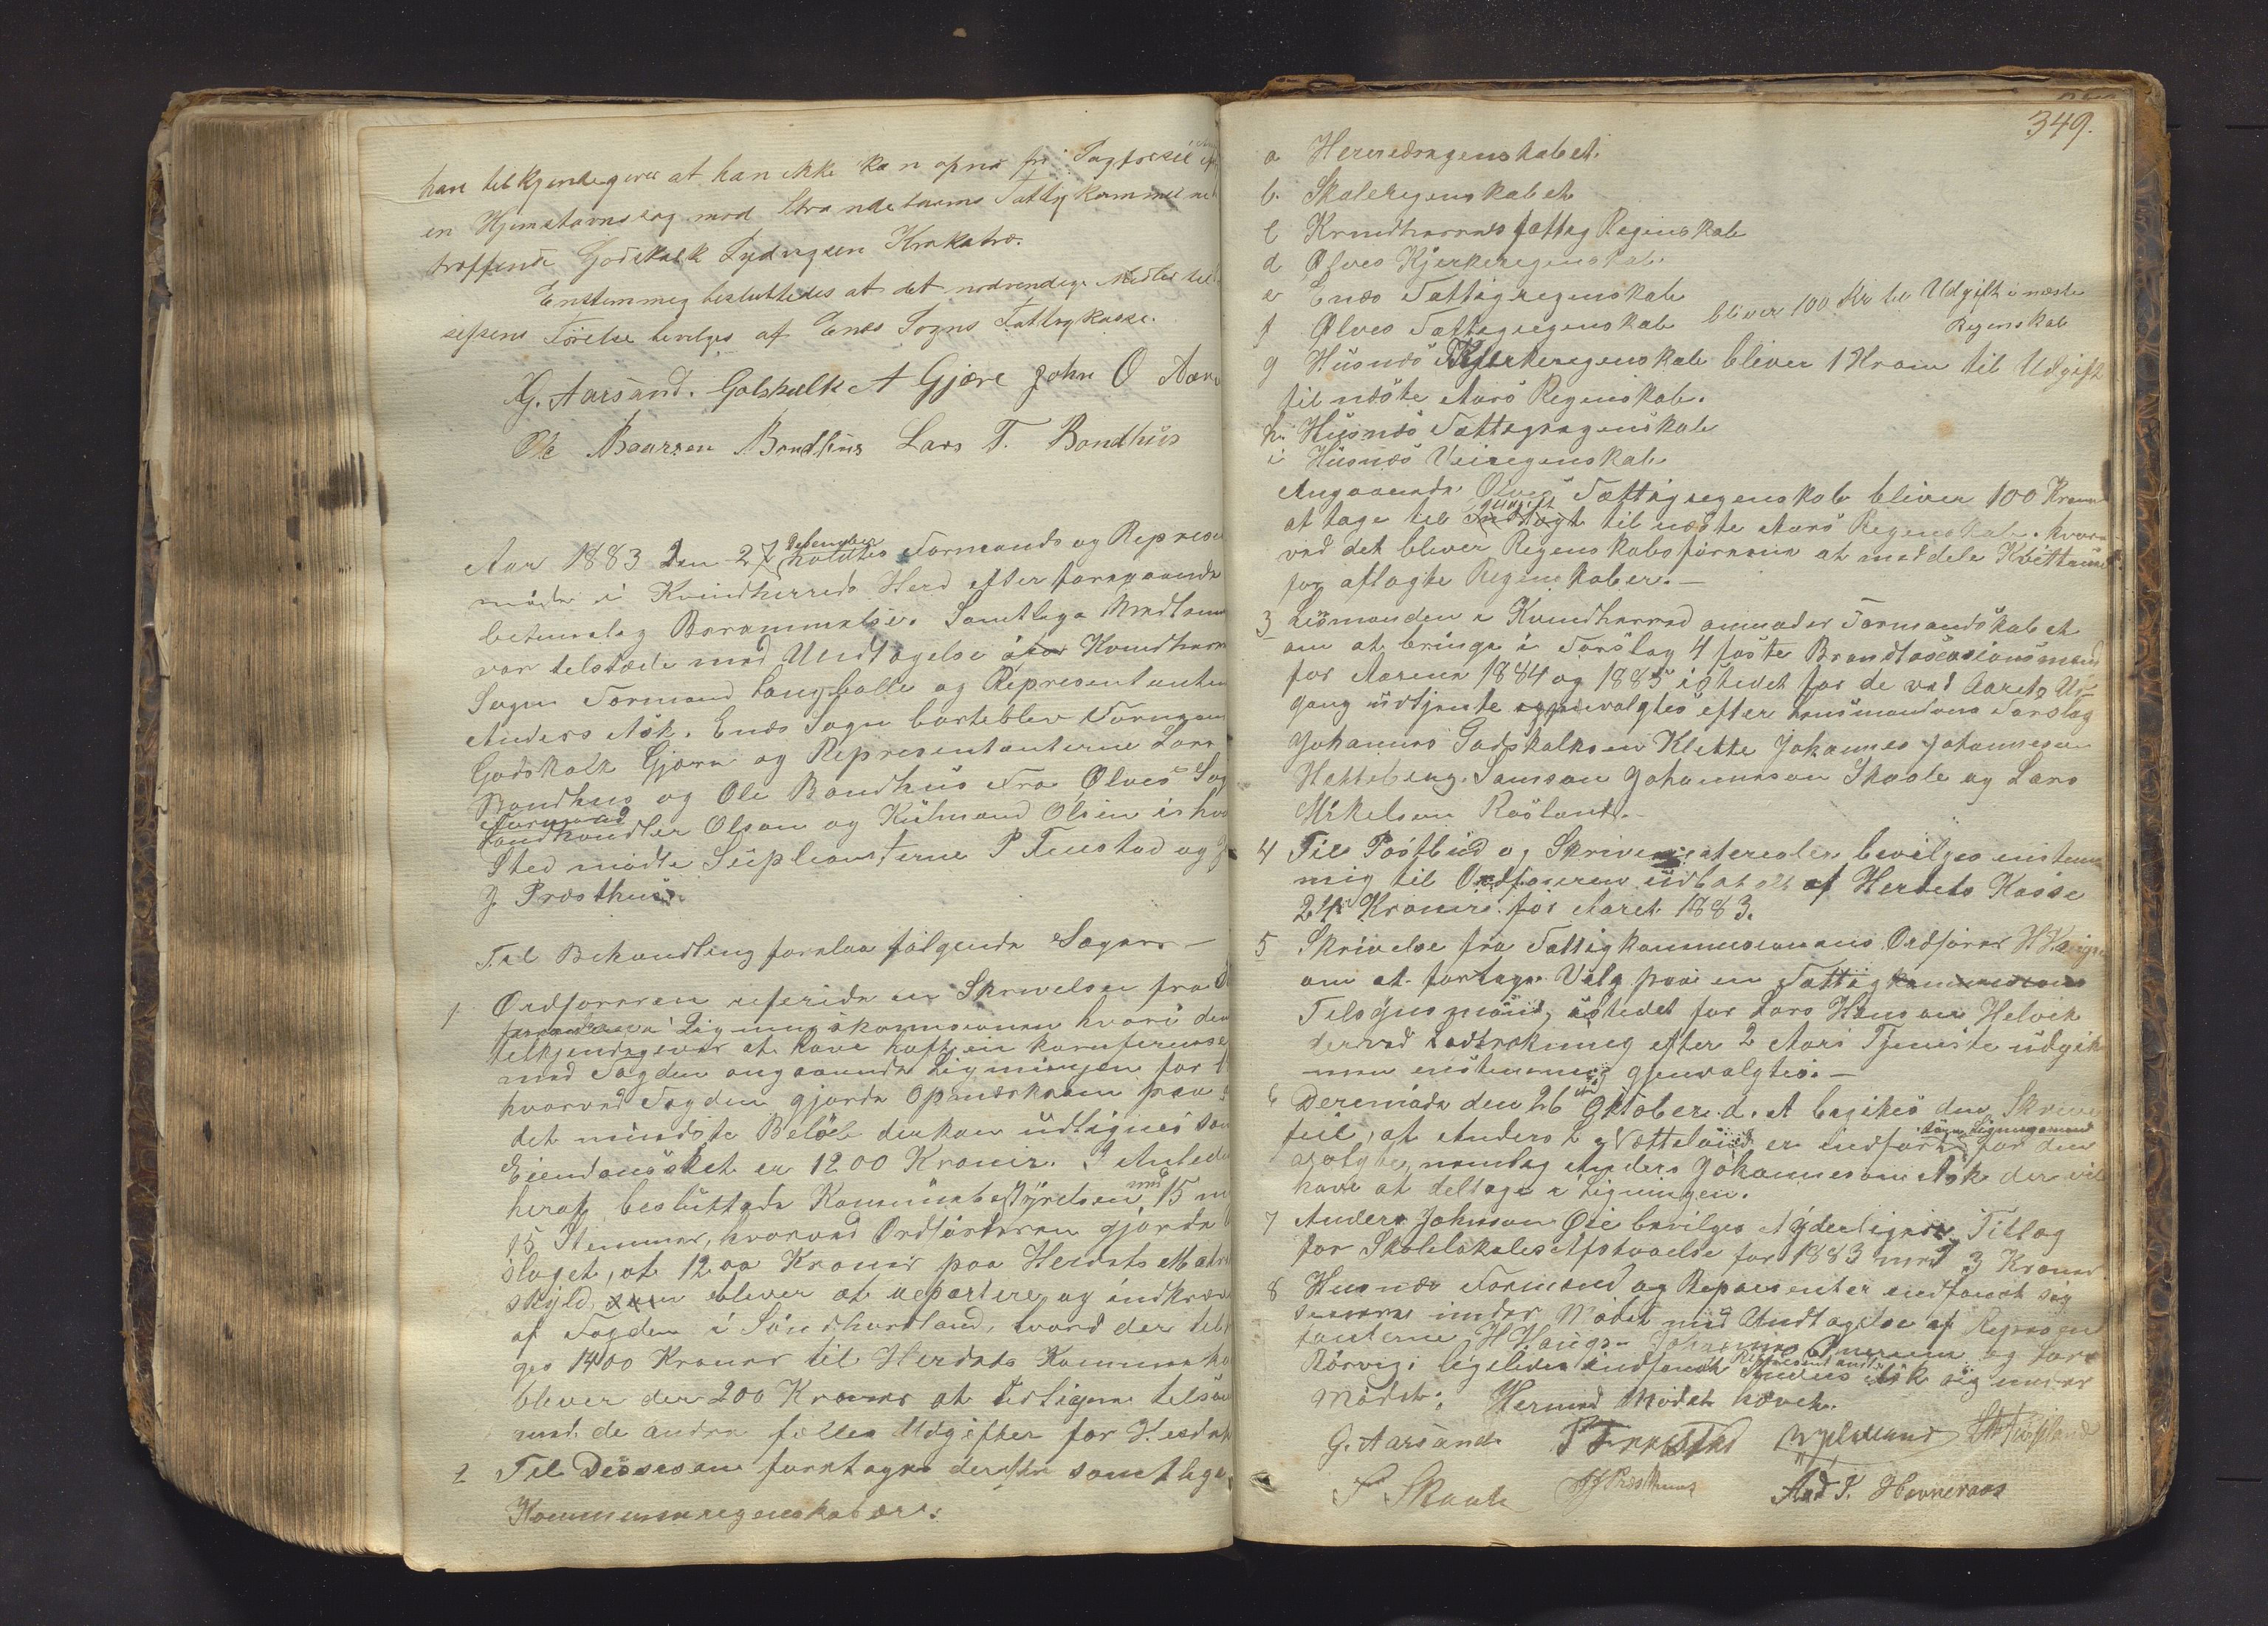 han tilkjendegiver at han ikke kan opnaa fri Sagførsel i
en Hjemstavnssag mod Strandebarms Fattigkommune
træffende Godskalk Ludvigsen Krakatræ.
Enstemmig besluttedes at det nødvendige Midler til
sessens Førelse bevilges af Enæs Sogns Fattigkasse.
G. Aarsand. Golskalk A Gjære John O
Ole Baarsen Bondhus Lars T. Bondhus
Aar 1883 Den 27 December holdtes Formands og Represen
møde i Kvindherreds Herd efter foregaaende
betimelig Berammelse. Samtlige Medlemm
var tilstæde med Undtagelse af Kvindherr
Sogn Formand Langballe og Representanten
Anders Ask. Enæs Sogn borteblev Formand
Godskalk Gjære og Representanterne Lars
Bondhus og Ole Bondhus Fra Ølves Sog
Formand
Landhandler Olsen og Kulmand Olsen i hvis
Sted mødte Suplianterne P Tenestad og J
J. Præsthus.
Til Behandling forelaa følgende Sager —
1 Ordføreren referide en Skrivelse fra
Ligningskommisionen hvori den
tilkjendegiver at have haft en konference
med Fogden angaaende Ligningen for
hvorved Fogden gjorde Opmærksom paa
det mindste Beløb der kan udlignes som
Eiendomsskat er 1200 Kroner. I Anled
heraf besluttede Kommunebestyrelsen med 15 m
15 Stemmer, hvorved Ordføreren gjorde
slaget, at 1200 Kroner paa Herdets Matri
skyld, bliver at repartere og indkræv
af Fogden i Søndhordland, hvored der til
ges 1400 Kroner til Herdets Kommuneka
bliver der 200 Kroner at udligne tils
med de andre fælles Udgifter for Herdet
2 Til Desision foretages derefter samtlige
Kommuneregenskaber:
349.
a Herredregenskabet.
b. Skoleregenskabet
c Kvindherreds fattig Regenskab
d Ølves Kjerkeregenskab.
e Enæs Fattigregenskab
f Ølves Fattigregenskab bliver 100 Kr til Udgift i næste
Regenskab
g Husnæs Kjerkeregenskab bliver 1 Krone til Udgift
til næste Aars Regenskab.
h. Husnæs Fattigregenskab
i Husnæs Veiregenskab
Angaaende Ølves Fattigregenskab bliver 100 Kroner
at tage til Udgift Indtægt til næste Aars Regenskab. hvor
ved det bliver Regenskabsførerne at meddele Kvittering
for aflagte Regenskaber. —
3 Lensmanden i Kvindherred anmoder Formandskabet
om at bringe i Forslag 4 faste Brandtasasionsmænd
for Aarene 1884 og 1885 istedet for de ved Aarets Ud-
gang udtjente valgtes efter Lensmandens Forslag
Johannes Godskalksen Klette Johannes Johannesen
Hatteberg. Samson Johannesen Skaale og Lars
Mikelsen Røsland. —
4 Til Postbud og Skrivematerealer bevilges enstem
mig til Ordføreren udbetalt af Herdets Kasse
24 Kroner for Aaret 1883.
5 Skrivelse fra Fattigkommisionens Ordfører H Hauge
om at foretage Valg paa en Fattigkommisions
Tilsynsmand, istedet for Lars Hansen Helvik
der ved Lodtrækning efter 2 Aars Tjeneste udgik
men enstemmig gjenvalgtes. —
6 Deremøde den 26 Oktober d. A begikes den Skrive
feil, at Anders L Vetteland er indført som Ligningsmand for den
valgte, nemlig Anders Johannesen Ask der vil
have at deltage i Ligningen.
7 Anders Johnson Øie bevilges Ayderligere Tillæg
for Skolelokales Afstaaelse for 1883 med 3 Kroner
8 Husnæs Formænd og Representer indfandt sig
senere under Mødet med Undtagelse af Represen
tanterne H Haugs Johannes Omersen og Lars
Rørvig. ligeledes indfandt Representant Anders Ask sig under
Mødet. Hermed Mødet hævet.
G. Aarsand P Tenestad
F Skaale JJ Præsthuus And T. Hovneraas